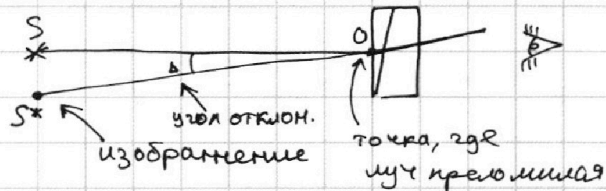 S
O
S*
угол отклон.
изображение
точка, где
луч преломился